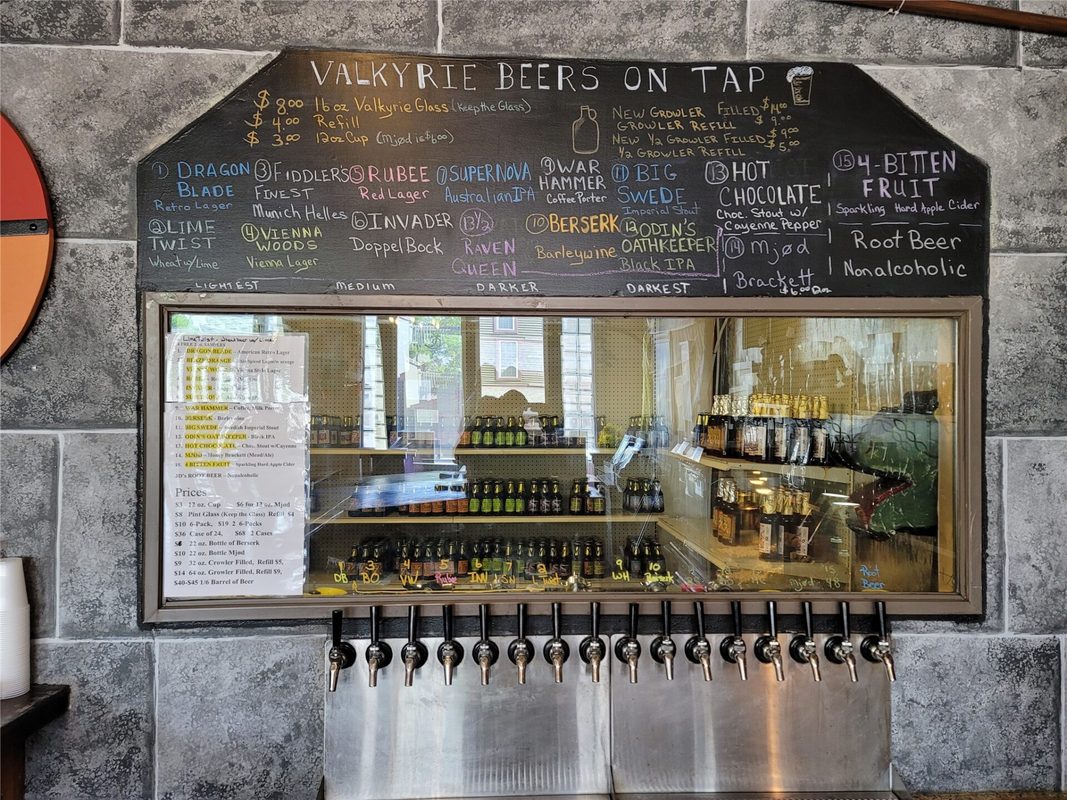 VALKYRIE BEERS ON TAP
$8.00 16oz Valkyrie Glass (Keep the Glass)
$4.00 Refill
$3.00 12oz Cup (Mjød is $6.00)
New Growler Filled $14.00
Growler Refill $9.00
New ½ Growler Filled $9.00
½ Growler Refill $5.00
① DRAGON
BLADE
Retro Lager
② LIME
TWIST
Wheat w/Lime
③ FIDDLERS
FINEST
Munich Helles
④ VIENNA
WOODS
Vienna Lager
⑤ RUBEE
Red Lager
⑥ INVADER
Doppel Bock
⑦ SUPERNOVA
Australian IPA
13½
RAVEN
QUEEN
⑨ WAR
HAMMER
Coffee Porter
⑩ BERSERK
Barleywine
⑪ BIG
SWEDE
Imperial Stout
⑫ ODIN'S
OATHKEEPER
Black IPA
⑬ HOT
CHOCOLATE
Choc. Stout w/
Cayenne Pepper
⑭ Mjød
Brackett
$6.00 12oz
⑮ 4-BITTEN
FRUIT
Sparkling Hard Apple Cider
Root Beer
Nonalcoholic
LIGHTEST MEDIUM DARKER DARKEST
1. DRAGON BLADE – American Retro Lager
9. WAR HAMMER – Coffee, Milk Porter
10. BERSERK – Barleywine
11. BIG SWEDE – Swedish Imperial Stout
12. ODIN'S OATHKEEPER – Black IPA
13. HOT CHOCOLATE – Choc. Stout w/Cayenne
14. MJØD – Honey Brackett (Mead/Ale)
15. 4 BITTEN FRUIT – Sparkling Hard Apple Cider
JD's ROOT BEER – Nonalcoholic
Prices
$3 12 oz. Cup $6 for 12 oz. Mjod
$8 Pint Glass (Keep the Glass) Refill $4
$10 6-Pack, $19 2 6-Packs
$36 Case of 24, $68 2 Cases
22 oz. Bottle of Berserk
$10 22 oz. Bottle Mjød
$9 32 oz. Crowler Filled, Refill $5,
$14 64 oz. Crowler Filled, Refill $9,
$40-$45 1/6 Barrel of Beer
1 DB
3 BO
4 VW
5 Rube
6 INV
7 SN
9 WH
10 Berserk
Root
Beer